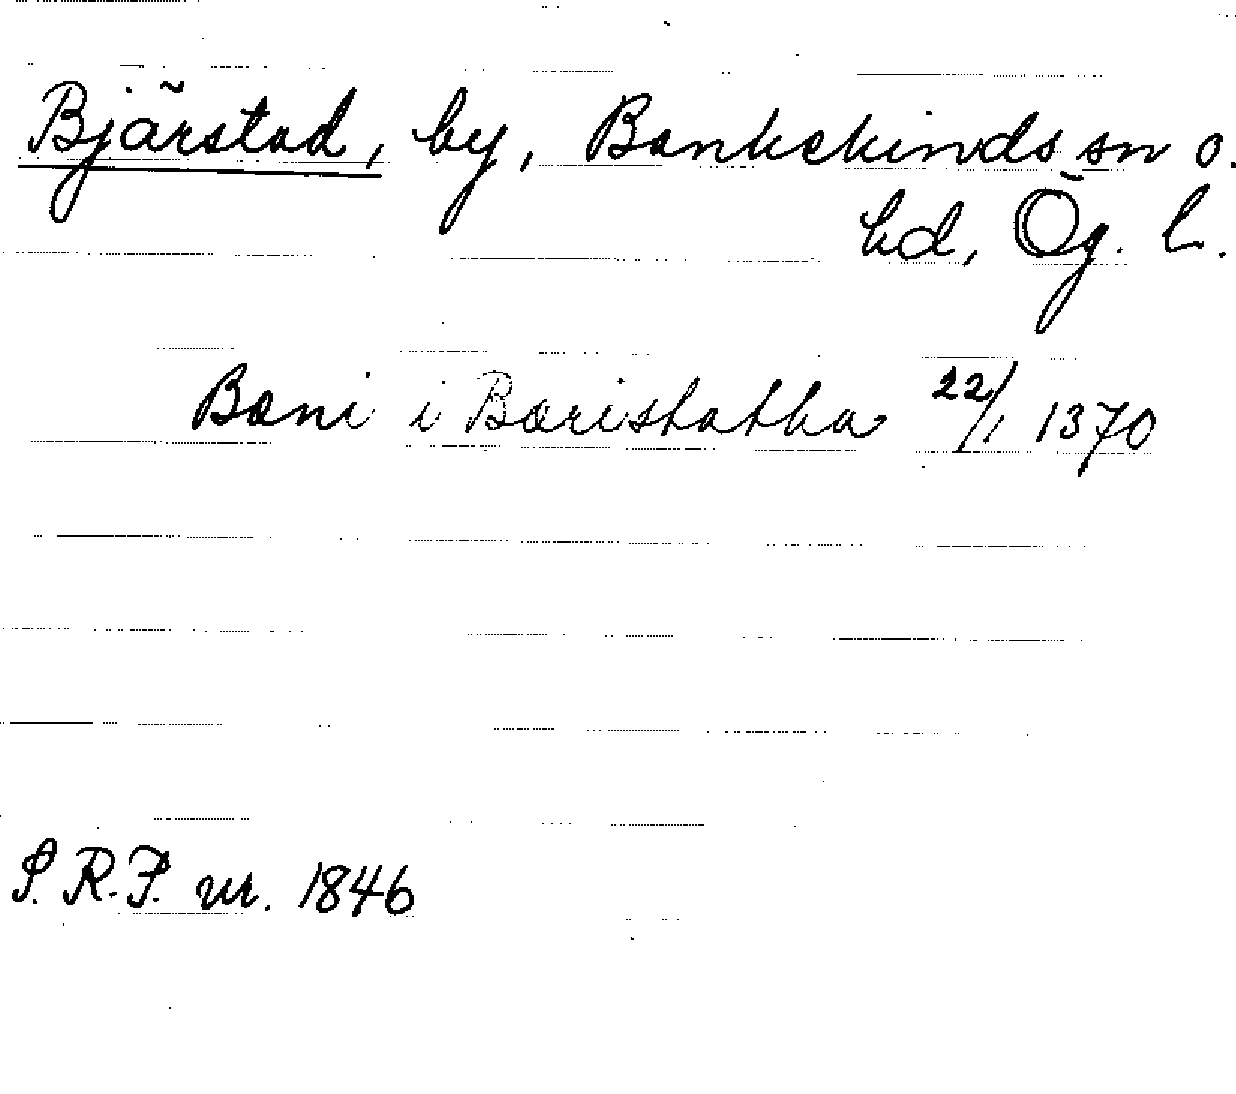 Bjärstad, by, Bankekinds sn o.
hd, Ög. l.
Bæni i Bæristatha 22/1 1370
S.R.P. nr. 1846